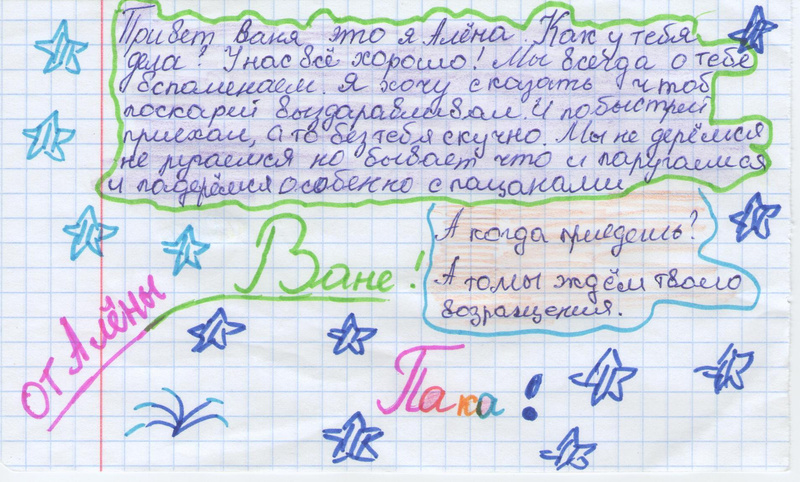 Привет Ваня это я Алёна. Как у тебя
дела? У нас всё хорошо! Мы всегда о тебе
вспоменаем. Я хочу сказать чтоб
поскарей выздаравливал. И побыстрей
приехал, а то без тебя скучно. Мы не дерёмся
не ругаемся но бывает что и паругаемся
и падерёмся особенно с пацанами
Ване!
А когда приедешь?
А то мы ждём твоего
возращения.
от Алёны
Пака!